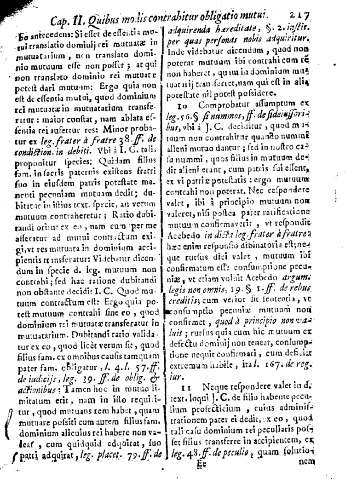 Cap. II. Quibus modis contrahitur obligatio mutui. 217
Eo antecedens: Si esset de essentia mu-
tui translatio dominij rei mutuatæ in
mutuatarium, non translato domi-
nio mutuum esse non posset; at qui
non translato dominio rei mutuatæ
potest dari mutuum: Ergo quia non
est de essentia mutui, quod dominium
rei mutuatæ in mutuatarium transfe-
ratur: maior constat, nam ablata es-
sentia rei aufertur res: Minor proba-
tur ex leg. frater à fratre 38. ff. de
condiction. indebiti. Vbi I. C. talis
proponitur species; Quidam filius
fam. in sacris paternis existens fratri
suo in eiusdem patris potestate ma-
nenti pecuniam mutuam dedit; du-
bitatur in illius text. specie, an verum
mutuum contraheretur; Ratio dubi-
tandi oritur ex eo, nam cum per me
asseratur ad mutui contractum exi-
gi, vt res mutuata in dominium acci-
pientis transferatur: Videbatur dicen-
dum in specie d. leg. mutuum non
contrahi; sed hac ratione dubitandi
non obstante decidit I. C. Quod mu-
tuum contractum est: Ergo quia po-
test mutuum contrahi sine eo, quod
dominium rei mutuatæ transferatur in
mutuatarium. Dubitandi ratio valida-
tur ex eo, quod licèt verum sit, quod
filius fam. ex omnibus causis tamquam
pater fam. obligatur, l. 4. l. 57. ff.
de iudicijs, leg. 39. ff. de oblig. &
actionibus: Tamen hoc in mutuo li-
mitatum erit, nam in isto requiri-
tur, quod mutuans rem habet, quam
mutuum posset cum autem filius fam.
dominium alicuius rei habere non va-
leat, cum quidquid adquirat, suo
patri adquirat, leg. placet. 79. ff. de
adquirenda hæreditate, §. 2. instit.
per quas personas nobis adquiritur.
Inde videbatur dicendum, quòd non
poterat mutuum contrahi cum rem
non haberet, quam in dominium mu-
tuatarij transferret, nam qui est in alia
potestate nil potest possidere.
10 Comprobatur assumptum ex
leg. 56. § si nummos, ff. de fideiussori-
bus, vbi I. C. deciditur, quod mu-
tuum non contrahitur quando nummi
alieni mutuo dantur; sed in nostro ca-
su nummi, quos filius in mutuum de-
dit alieni erant, cum patris fuissent,
ex vi patriæ potestatis: ergo mutuum
contrahi non poterat. Nec respondere
valet, ibi à principio mutuum non
valeret, nisi postea pater ratificatione
mutuum confirmaverit, vt respondit
Acebedo in dicta leg. frater à fratre
hæc enim responsio divinatoria est; ne-
que rursus dici valet, mutuum ibi
confirmatum esse consumptione pecu-
niæ, vt etiam voluit Acebedo argum.
legis non omnis, 19. § 1. ff. de rebus
creditis; cum verior sit sententia, vt
consumptione pecuniæ mutuum non
confirmari, quod à principio non va-
luit; rursus quia cum hic mutuum ex
defectu dominij non teneat, consump-
tione nequit confirmari, cum defuisset
extremum habile, iuxtà l. 167. de reg.
iur.
11 Neque respondere valet in d.
text. loqui I. C. de filio habente pecu-
lium profectitium, cuius adminis-
trationem pater ei dedit, ex eo, quod
tali casu dominium rei peculiaris pos-
set filius transferre in accipientem, ex
leg. 48. ff. de peculio, quam solutio-
Ee nem